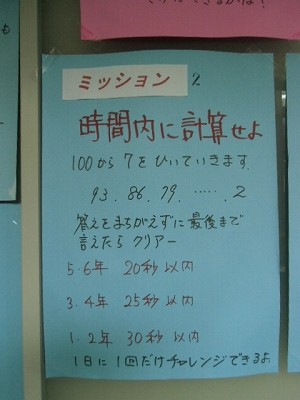 ミッション 2
時間内に計算せよ
100から7をひいていきます.
93.86.79.……..2
答えをまちがえずに最後まで
言えたら クリアー
5.6年 20秒以内
3.4年 25秒以内
1.2年 30秒以内
1日に1回だけチャレンジできるよ